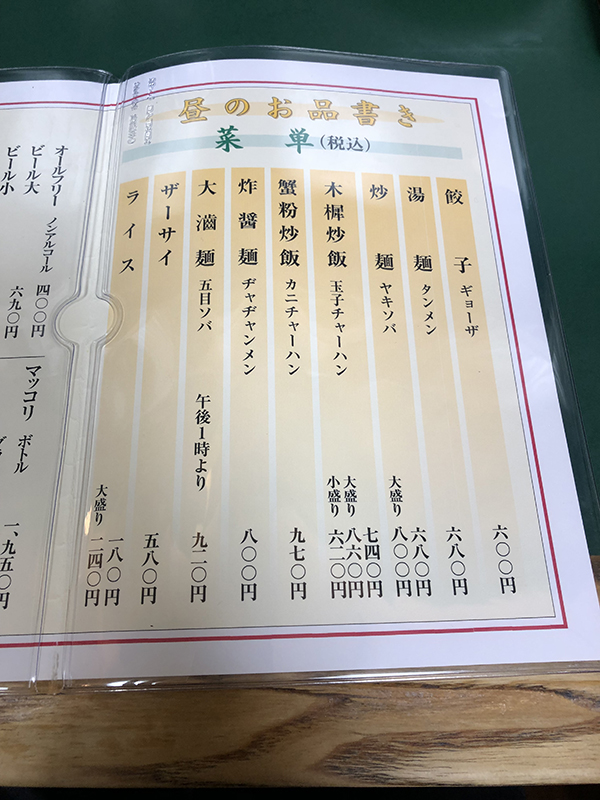 昼のお品書き
菜単(税込)
餃子 ギョーザ 六〇〇円
湯麺 タンメン 六八〇円
炒麺 ヤキソバ 六八〇円
大盛り 八〇〇円
木樨炒飯 玉子チャーハン 七四〇円
大盛り 八六〇円
小盛り 六二〇円
蟹粉炒飯 カニチャーハン 九七〇円
炸醤麺 ヂャヂャンメン 八〇〇円
大滷麺 五目ソバ 午後1時より 九二〇円
ザーサイ 五八〇円
ライス 一八〇円
大盛り 二四〇円
オールフリー ノンアルコール 四〇〇円
ビール大 六九〇円
ビール小
マッコリ ボトル 一、九五〇円